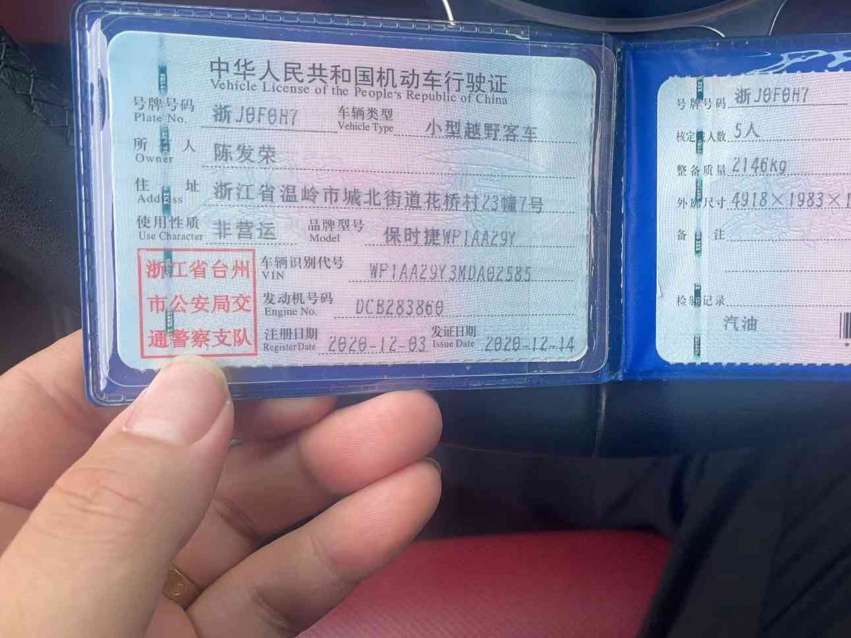 中华人民共和国机动车行驶证
Vehicle License of the People's Republic of China
号牌号码 浙J0F0H7 车辆类型 小型越野客车
Plate No. Vehicle Type
所有人 陈发荣
Owner
住址 浙江省温岭市城北街道花桥村23幢7号
Address
使用性质 非营运 品牌型号 保时捷WP1AA29Y
Use Character Model
浙江省台州
市公安局交
通警察支队
车辆识别代号 WP1AA29Y3MDA02585
VIN
发动机号码 DCB283860
Engine No.
注册日期 2020-12-03 发证日期 2020-12-14
Register Date Issue Date
号牌号码 浙J0F0H7
核定载人数 5人
整备质量 2146kg
外廓尺寸 4918×1983×1
备注
检验记录
汽油